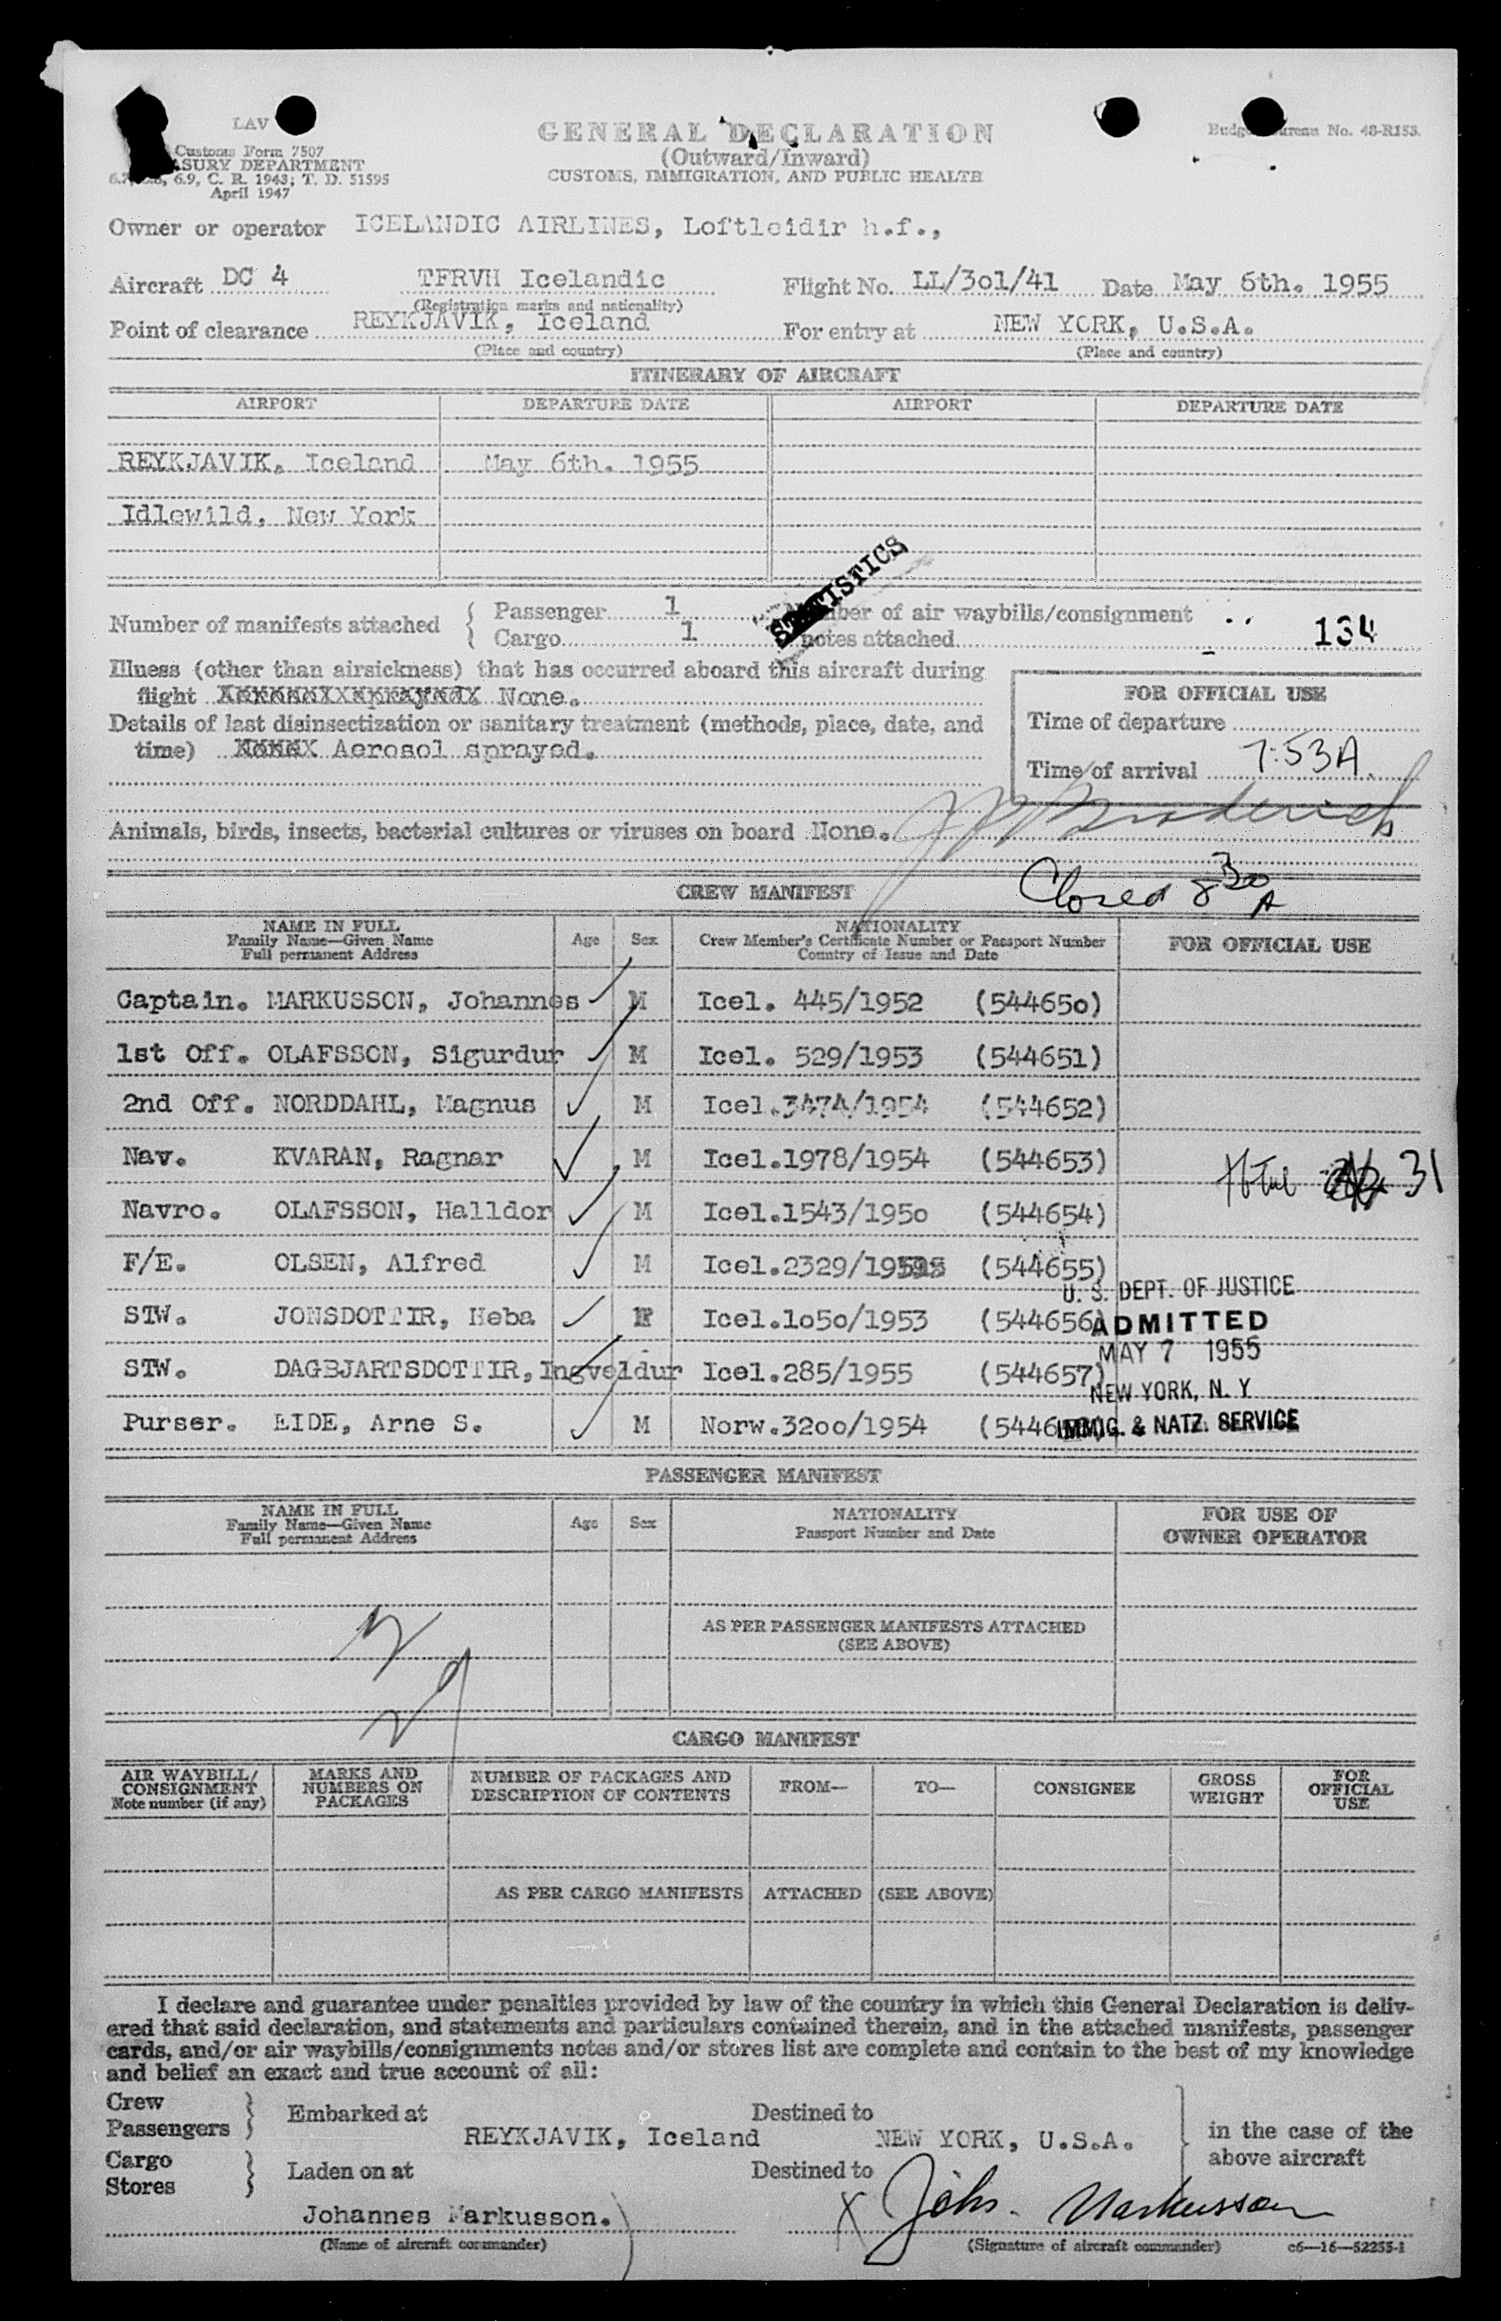 LAV
Customs Form 7507
TREASURY DEPARTMENT
6.9, C. R. 1943; T. D. 51595
April 1947
GENERAL DECLARATION
(Outward/Inward)
CUSTOMS, IMMIGRATION, AND PUBLIC HEALTH
Budget Bureau No. 48-R153.
Owner or operator ICELANDIC AIRLINES, Loftleidir h.f.,
Aircraft DC 4 TFRVH Icelandic Flight No. LL/3o1/41 Date May 6th. 1955
(Registration marks and nationality)
Point of clearance REYKJAVIK, Iceland For entry at NEW YORK, U.S.A.
(Place and country) (Place and country)
ITINERARY OF AIRCRAFT
AIRPORT DEPARTURE DATE AIRPORT DEPARTURE DATE
REYKJAVIK, Iceland May 6th. 1955
Idlewild, New York
STATISTICS
Number of manifests attached { Passenger 1 Number of air waybills/consignment
Cargo 1 notes attached 134
Illness (other than airsickness) that has occurred aboard this aircraft during
flight None.
Details of last disinsectization or sanitary treatment (methods, place, date, and
time) Aerosol sprayed.
FOR OFFICIAL USE
Time of departure
Time of arrival 7:53A
Animals, birds, insects, bacterial cultures or viruses on board None.
Closed 8 30 A
CREW MANIFEST
NAME IN FULL
Family Name—Given Name
Full permanent Address
Age Sex
NATIONALITY
Crew Member's Certificate Number or Passport Number
Country of Issue and Date
FOR OFFICIAL USE
Captain. MARKUSSON, Johannes M Icel. 445/1952 (54465o)
1st Off. OLAFSSON, Sigurdur M Icel. 529/1953 (544651)
2nd Off. NORDDAHL, Magnus M Icel.3474/1954 (544652)
Nav. KVARAN, Ragnar M Icel.1978/1954 (544653)
31
Navro. OLAFSSON, Halldor M Icel.1543/195o (544654)
F/E. OLSEN, Alfred M Icel.2329/19 (544655)
STW. JONSDOTTIR, Heba F Icel.1o5o/1953 (544656)
STW. DAGBJARTSDOTTIR, Ingveldur Icel.285/1955 (544657)
Purser. EIDE, Arne S. M Norw.32oo/1954
U. S. DEPT. OF JUSTICE
ADMITTED
MAY 7 1955
NEW YORK, N. Y
IMMIG. & NATZ. SERVICE
PASSENGER MANIFEST
NAME IN FULL
Family Name—Given Name
Full permanent Address
Age Sex
NATIONALITY
Passport Number and Date
FOR USE OF
OWNER OPERATOR
AS PER PASSENGER MANIFESTS ATTACHED
(SEE ABOVE)
29
CARGO MANIFEST
AIR WAYBILL/
CONSIGNMENT
Note number (if any)
MARKS AND
NUMBERS ON
PACKAGES
NUMBER OF PACKAGES AND
DESCRIPTION OF CONTENTS
FROM— TO— CONSIGNEE
GROSS
WEIGHT
FOR
OFFICIAL
USE
AS PER CARGO MANIFESTS ATTACHED (SEE ABOVE)
I declare and guarantee under penalties provided by law of the country in which this General Declaration is deliv-
ered that said declaration, and statements and particulars contained therein, and in the attached manifests, passenger
cards, and/or air waybills/consignments notes and/or stores list are complete and contain to the best of my knowledge
and belief an exact and true account of all:
Crew
Passengers } Embarked at REYKJAVIK, Iceland Destined to NEW YORK, U.S.A.
Cargo
Stores } Laden on at Destined to
in the case of the
above aircraft
Johannes Markusson. X Johs. Markusson
(Name of aircraft commander) (Signature of aircraft commander) c6—16—52255-1